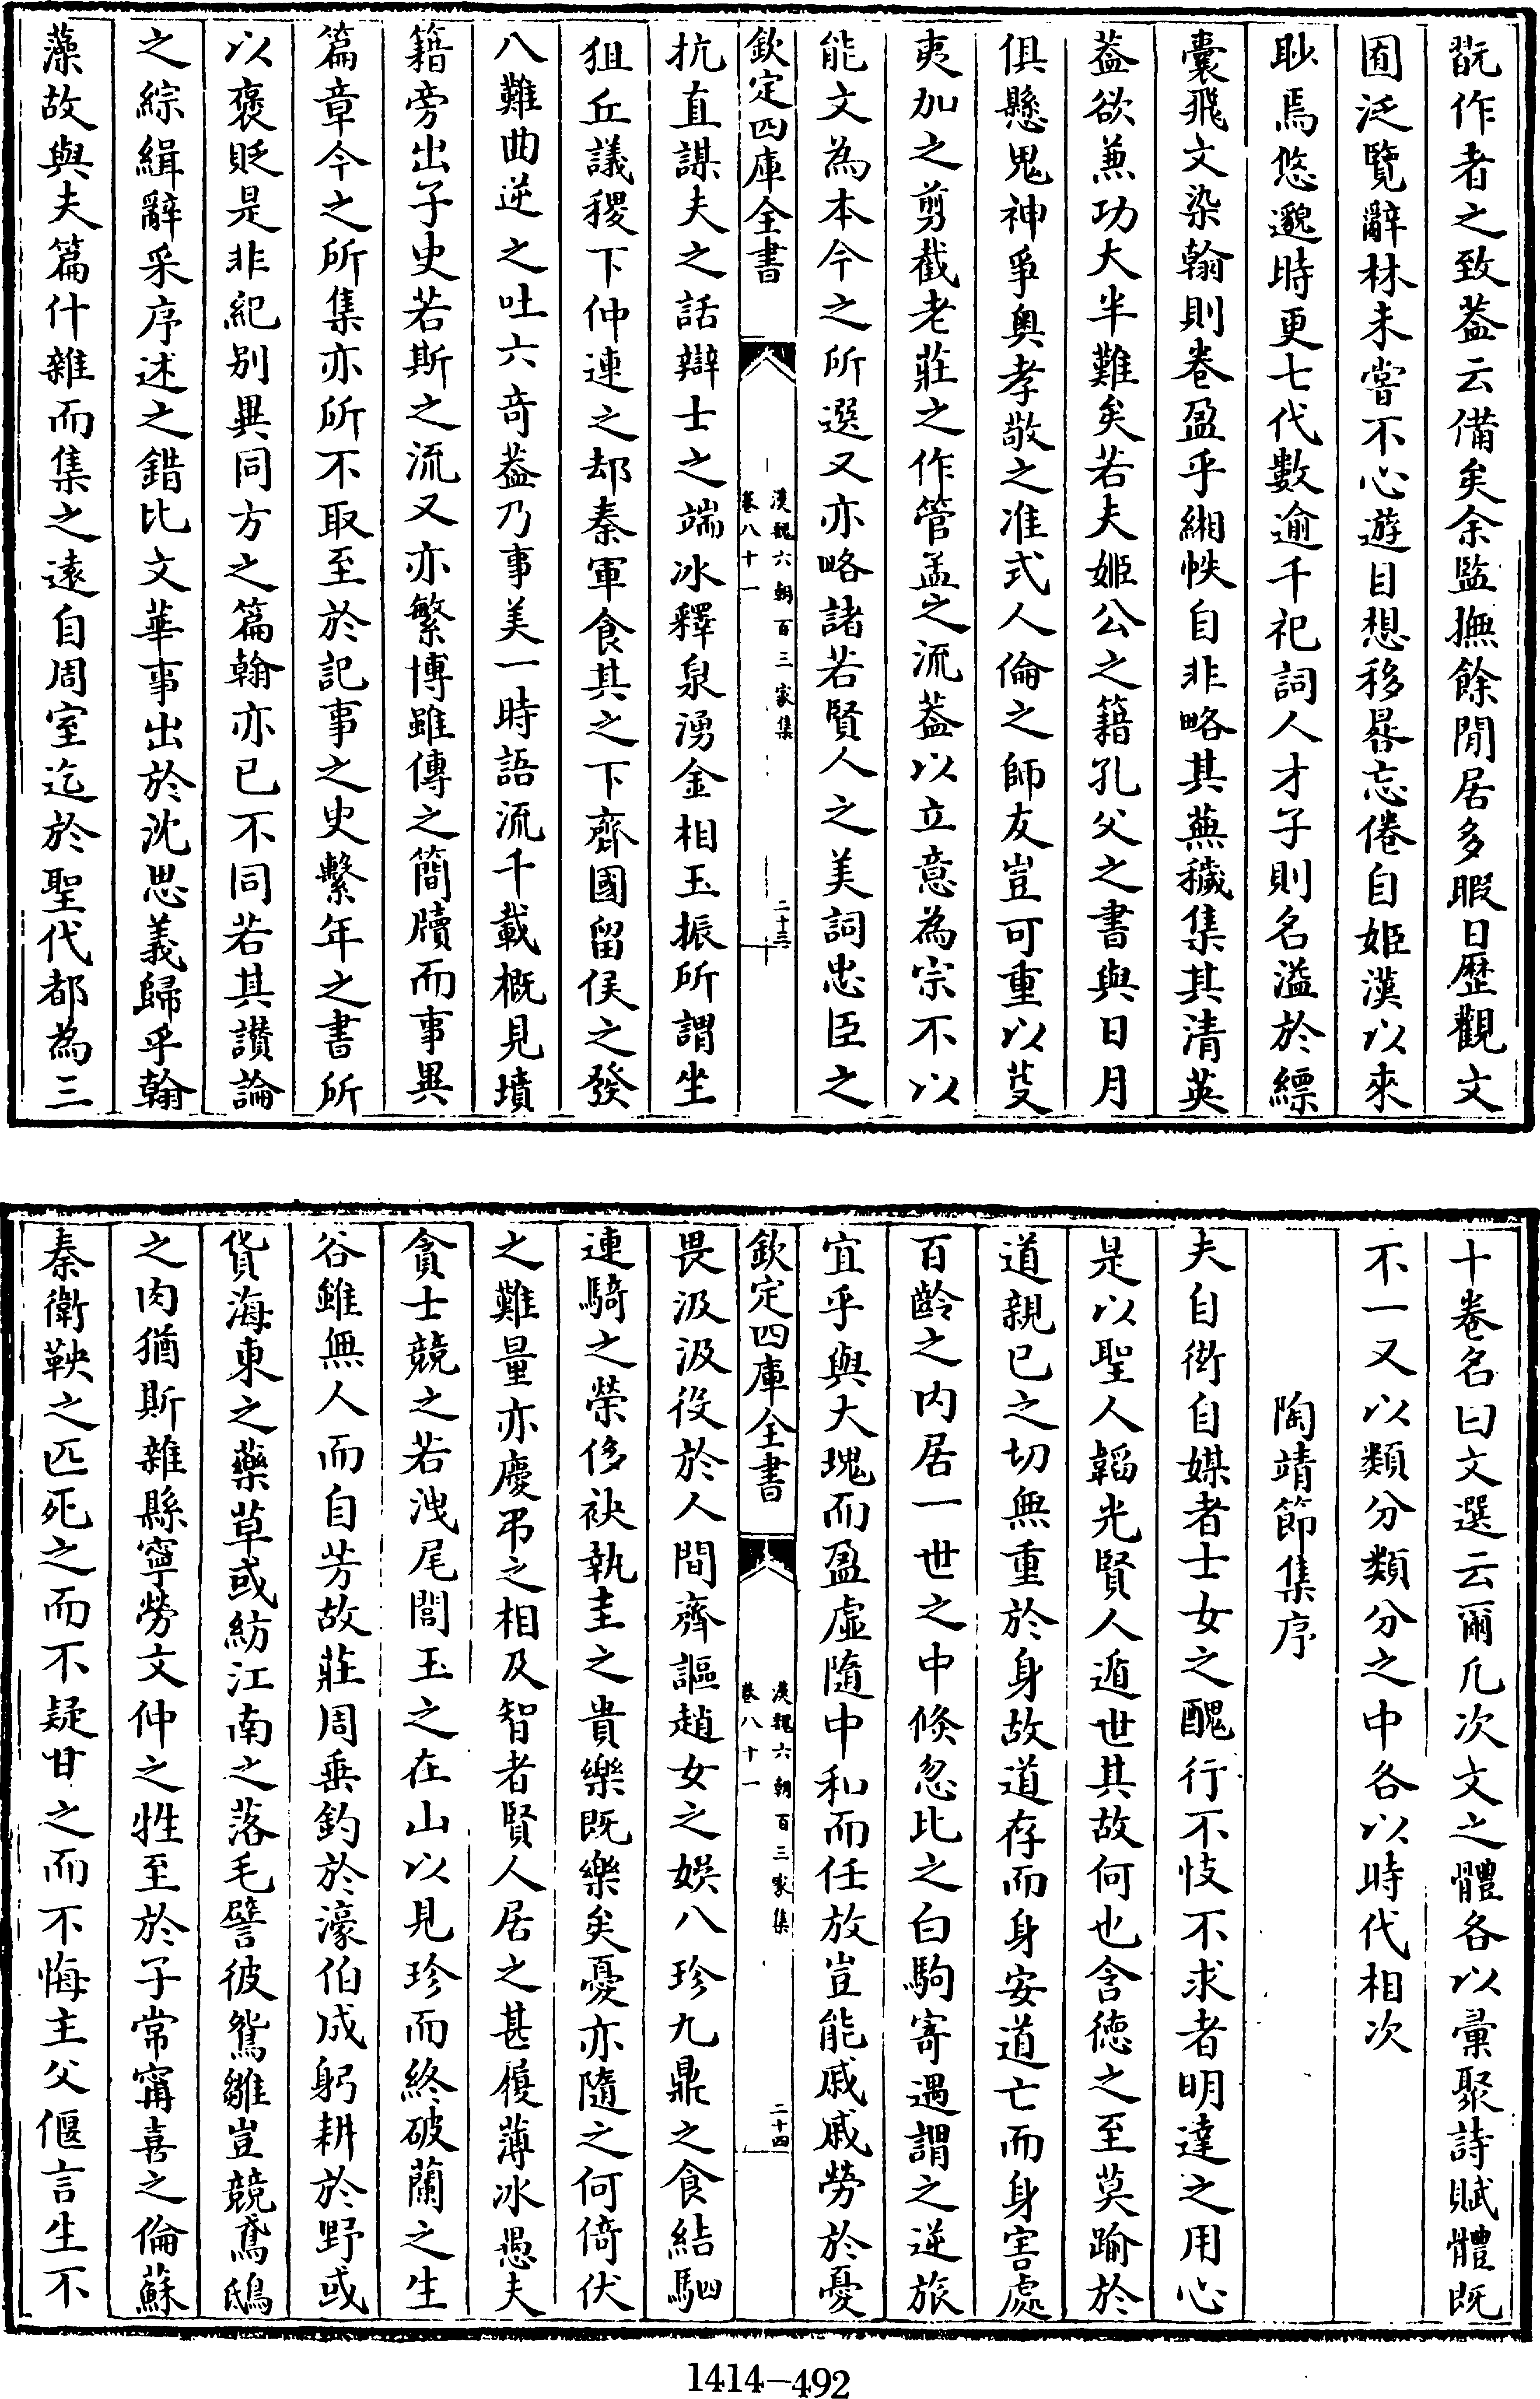 翫作者之致蓋云備矣余監撫餘閒居多暇日歴觀文
囿泛覽辭林未嘗不心遊目想移晷忘倦自姬漢以來
眇焉悠邈時更七代數逾千祀詞人才子則名溢於縹
囊飛文染翰則卷盈乎緗帙自非略其蕪穢集其清英
葢欲兼功大半難矣若夫姬公之籍孔父之書與日月
俱懸鬼神爭奥孝敬之准式人倫之師友豈可重以芟
夷加之剪截老莊之作管孟之流葢以立意為宗不以
能文為本今之所選又亦略諸若賢人之美詞忠臣之
欽定四庫全書
漢魏六朝百三家集
卷八十一
二十三
抗直謀夫之話辯士之端冰釋泉湧金相玉振所謂坐
狙丘議稷下仲連之却秦軍食其之下齊國留侯之發
八難曲逆之吐六奇葢乃事美一時語流千載概見墳
籍旁出子史若斯之流又亦繁博雖傳之簡牘而事異
篇章今之所集亦所不取至於記事之史繫年之書所
以褒貶是非紀别異同方之篇翰亦已不同若其讃論
之綜緝辭采序述之錯比文華事出於沈思義歸乎翰
藻故與夫篇什雜而集之逺自周室迄於聖代都為三
十卷名曰文選云爾凡次文之體各以彙聚詩賦體既
不一又以類分類分之中各以時代相次
陶靖節集序
夫自衒自媒者士女之醜行不忮不求者明達之用心
是以聖人韜光賢人遁世其故何也含徳之至莫踰於
道親已之切無重於身故道存而身安道亡而身害處
百齡之内居一世之中倐忽比之白駒寄遇謂之逆旅
宜乎與大瑰而盈虛隨中和而任放豈能戚戚勞於憂
欽定四庫全書
漢魏六朝百三家集
卷八十一
二十四
畏汲汲役於人間齊謳趙女之娱八珍九鼎之食結駟
連騎之榮侈袂執圭之貴樂既樂矣憂亦隨之何倚伏
之難量亦慶弔之相及智者賢人居之甚履薄冰愚夫
貪士競之若洩尾閭玉之在山以見珍而終破蘭之生
谷雖無人而自芳故莊周垂釣於濠伯成躬耕於野或
貨海東之藥草或紡江南之落毛譬彼鴛雛豈競鳶鴟
之肉猶斯雜縣寧勞文仲之牲至於子常甯喜之倫蘇
秦衛鞅之匹死之而不疑甘之而不悔主父偃言生不
1414-492